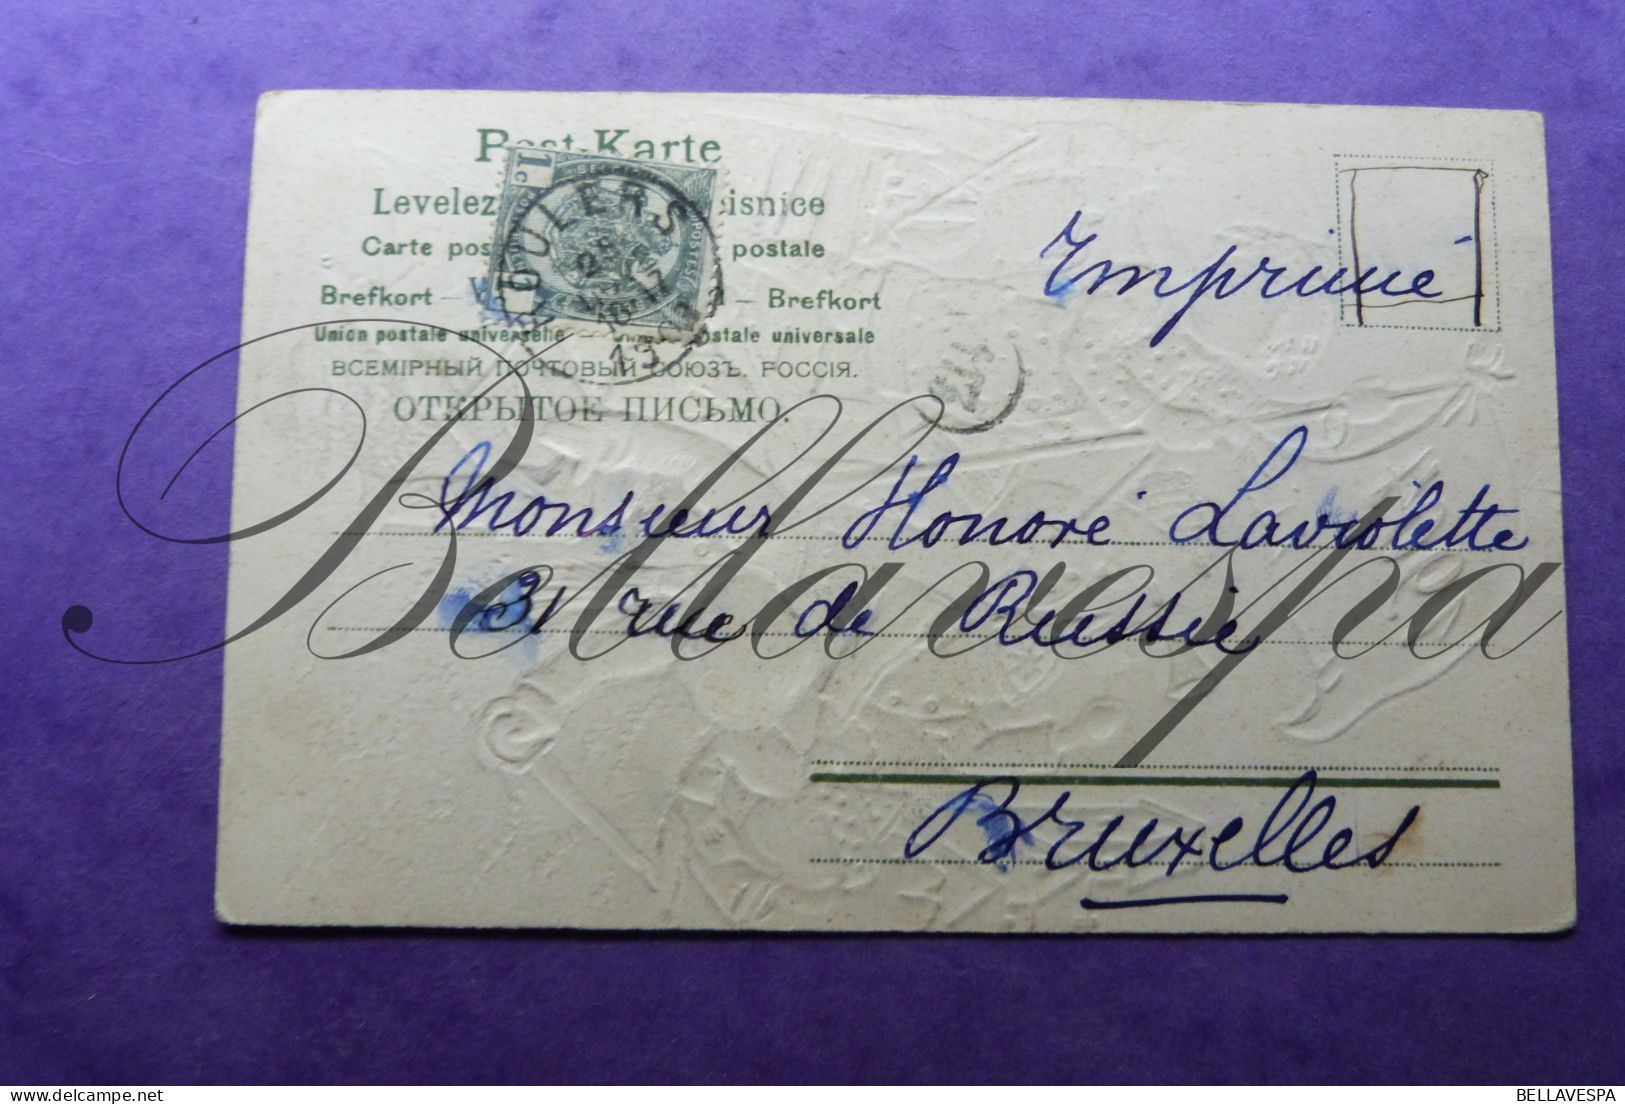 Post-Karte
Levelez isnice
Carte pos postale
Brefkort – – Brefkort
Union postale universelle – postale universale
ВСЕМІРНЫЙ ПОЧТОВЫЙ СОЮЗЪ. РОССІЯ.
ОТКРЫТОЕ ПИСЬМО.
1c
POSTES
ROULERS
10
Imprimé
Monsieur Honoré Laviolette
31 rue de Russie
Bruxelles
Bellavespa
BELLAVESPA